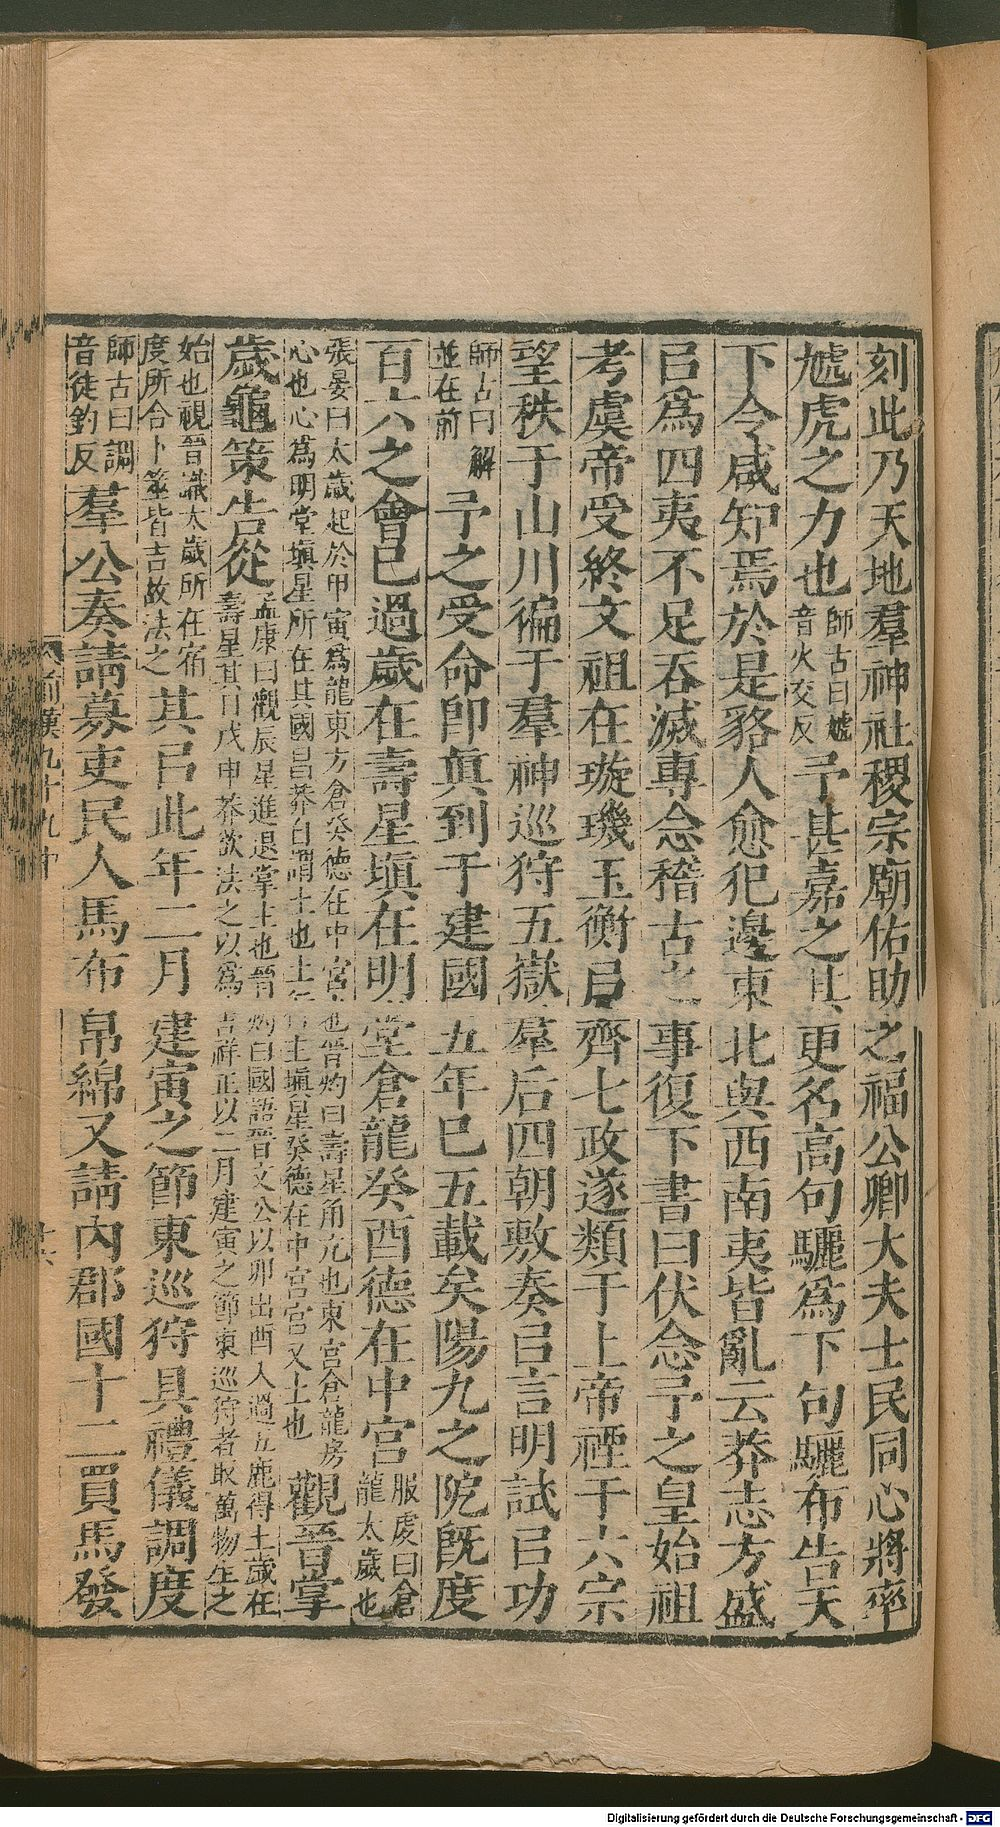 刻此乃天地羣神社稷宗廟佑助之福公卿大夫士民同心將率
虓虎之力也師古曰虓音火交反予甚嘉之其更名高句驪為下句驪布告天
下令咸知焉於是貉人愈犯邊東北與西南夷皆亂云莽志方盛
㠯為四夷不足吞滅專念稽古之事復下書曰伏念予之皇始祖
考虞帝受終文祖在璇璣玉衡㠯齊七政遂類于上帝禋于六宗
望秩于山川徧于羣神巡狩五嶽羣后四朝敷奏㠯言明試㠯功
師古曰解並在前予之受命即真到于建國五年已五載矣陽九之阸既度
百六之會已過歲在壽星塡在明堂倉龍癸酉德在中宮服虔曰倉龍太歲也
張晏曰太歲起於甲寅為龍東方倉癸德在中宮也晉灼曰壽星角亢也東宮倉龍房
心也心為明堂塡星所在其國昌莽自謂土也土行主塡星癸德在中宮宮又土也觀晉掌
歲龜策告從孟康曰觀辰星進退掌主也晉灼曰國語晉文公以卯出酉入過五鹿得土歲在
壽星其日戊申莽欲法之以為吉祥正以二月建寅之節東巡狩者取萬物生之
始也視晉識太歲所在宿度所合卜筮皆吉故法之其㠯此年二月建寅之節東巡狩具禮儀調度
師古曰調音徒釣反羣公奏請募吏民人馬布帛綿又請內郡國十二買馬發
前漢九十九中
Digitalisierung gefördert durch die Deutsche Forschungsgemeinschaft - DFG